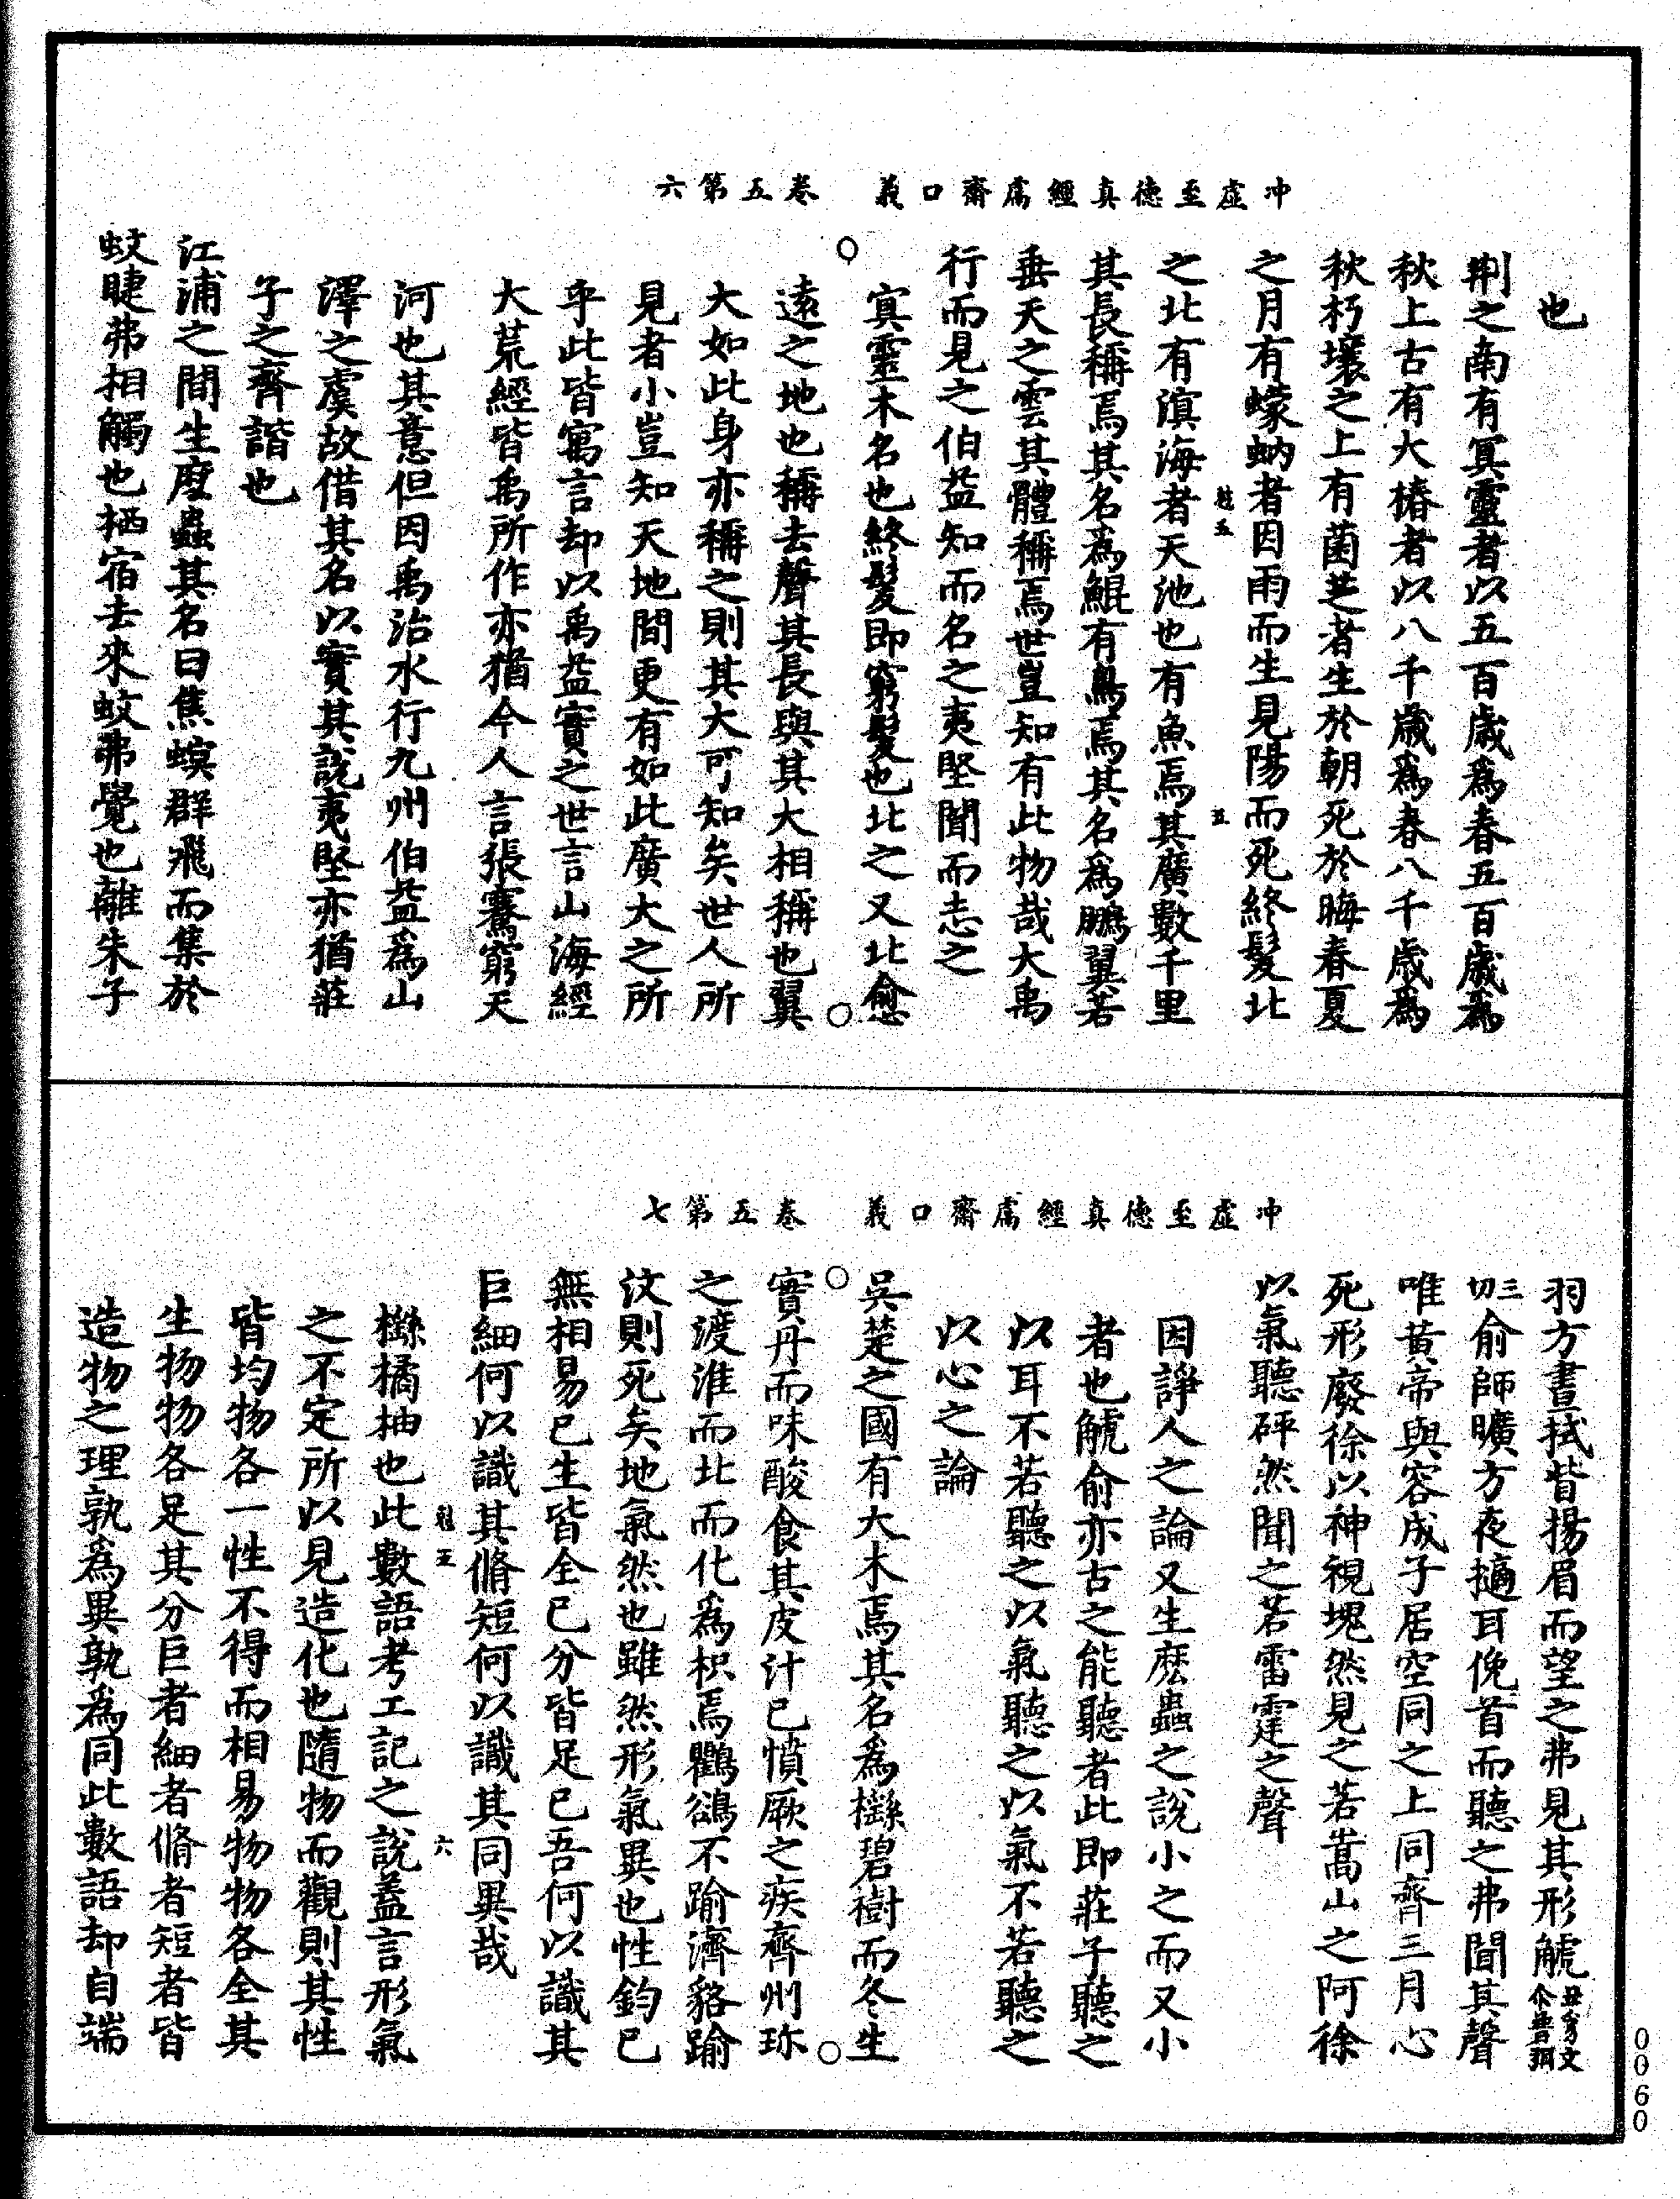 冲虛至德真經鬳齋口義　卷五第六
也
荆之南有冥靈者以五百歲爲春五百歲爲
秋上古有大椿者以八千歲爲春八千歲爲
秋朽壤之上有菌芝者生於朝死於晦春夏
之月有蠓蚋者因雨而生見陽而死終髮北
之北有溟海者天池也有魚焉其廣數千里
其長稱焉其名爲鯤有鳥焉其名爲鵬翼若
垂天之雲其體稱焉世豈知有此物哉大禹
行而見之伯益知而名之夷堅聞而志之
冥靈木名也終髮即窮髮也北之又北愈
遠之地也稱去聲其長與其大相稱也翼
大如此身亦稱之則其大可知矣世人所
見者小豈知天地間更有如此廣大之所
乎此皆寓言却以禹益實之世言山海經
大荒經皆禹所作亦猶今人言張騫窮天
河也其意但因禹治水行九州伯益爲山
澤之虞故借其名以實其說夷堅亦猶莊
子之齊諧也
江浦之間生麽蟲其名曰焦螟群飛而集於
蚊睫弗相觸也栖宿去來蚊弗覺也離朱子
五
五
冲虛至德真經鬳齋口義　卷五第七
羽方晝拭眥揚眉而望之弗見其形䚦
三切俞師曠方夜擿耳俛首而聽之弗聞其聲
唯黃帝與容成子居空同之上同齊三月心
死形廢徐以神視塊然見之若嵩山之阿徐
以氣聽砰然聞之若雷霆之聲
因諍人之論又生麽蟲之說小之而又小
者也䚦俞亦古之能聽者此即莊子聽之
以耳不若聽之以氣聽之以氣不若聽之
以心之論
吳楚之國有大木焉其名爲櫾碧樹而冬生
實丹而味酸食其皮汁已憤厥之疾齊州珍
之渡淮而北而化爲枳焉鸜鵒不踰濟貉踰
汶則死矣地氣然也雖然形氣異也性鈞已
無相易已生皆全已分皆足已吾何以識其
巨細何以識其脩短何以識其同異哉
櫾橘柚也此數語考工記之說蓋言形氣
之不定所以見造化也隨物而觀則其性
皆均物各一性不得而相易物物各全其
生物物各足其分巨者細者脩者短者皆
造物之理孰爲異孰爲同此數語却自端
五
六
0060